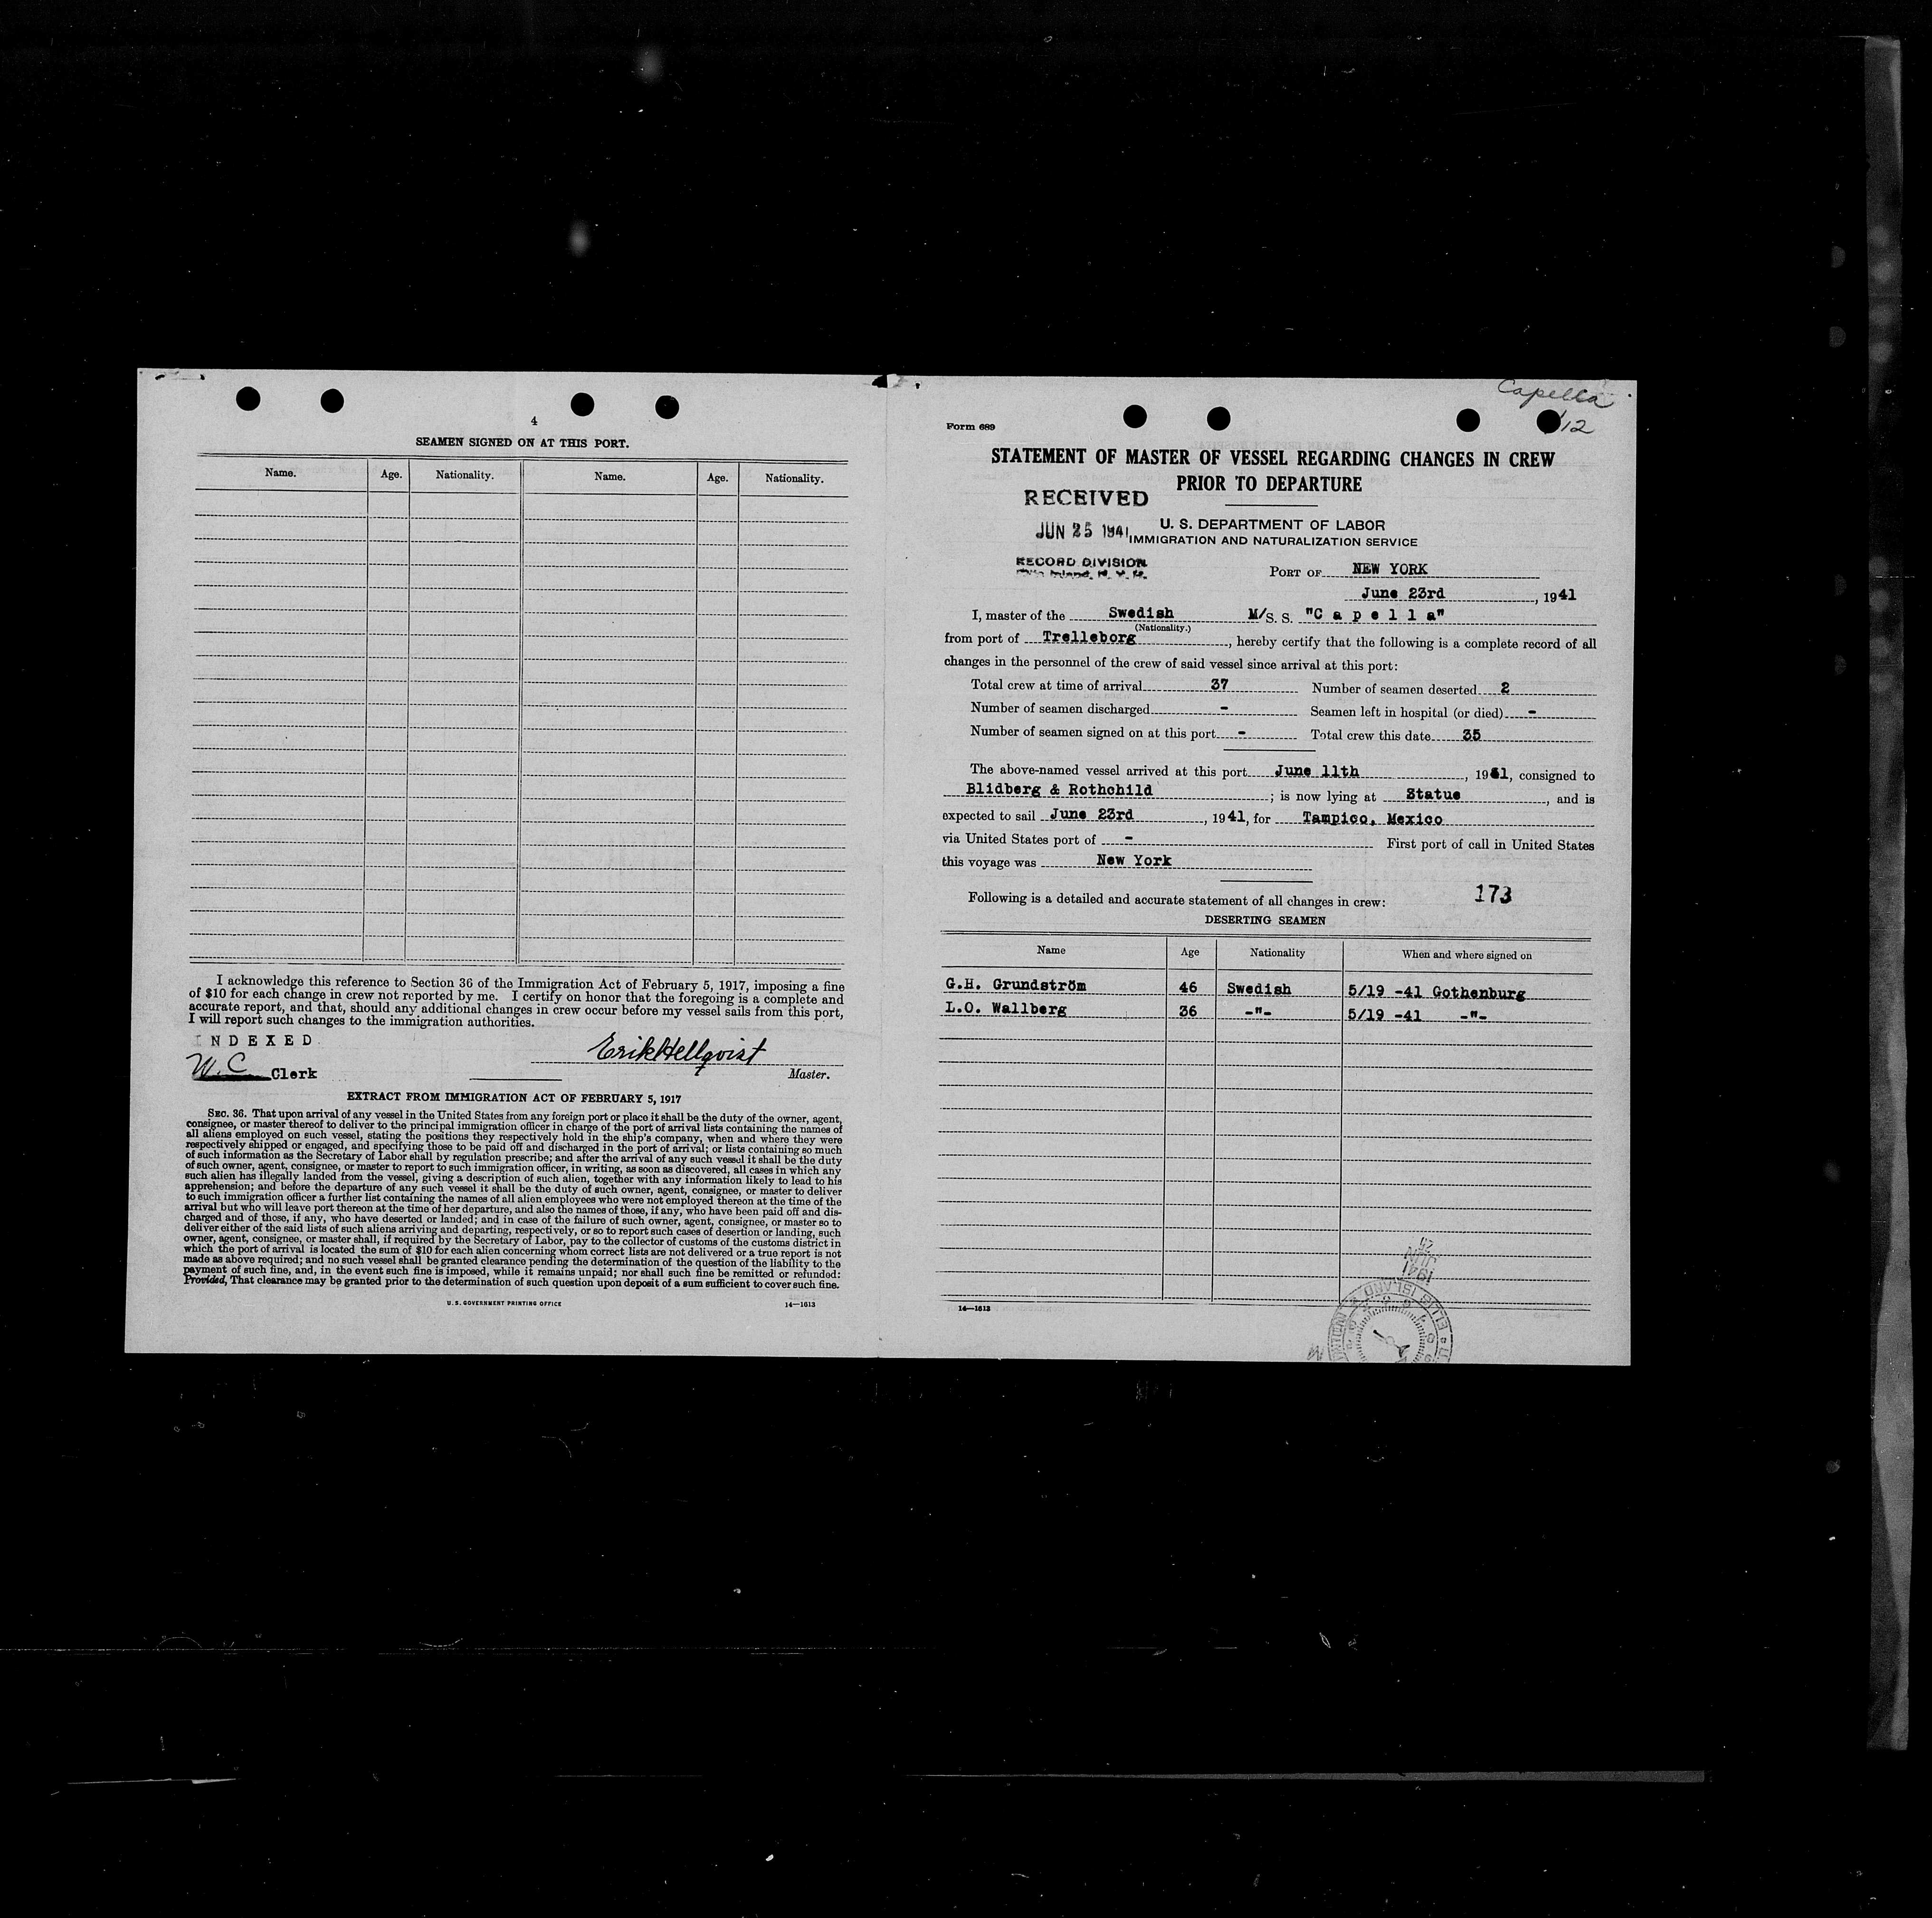 4
SEAMEN SIGNED ON AT THIS PORT.
Name. Age. Nationality. Name. Age. Nationality.
I acknowledge this reference to Section 36 of the Immigration Act of February 5, 1917, imposing a fine
of $10 for each change in crew not reported by me. I certify on honor that the foregoing is a complete and
accurate report, and that, should any additional changes in crew occur before my vessel sails from this port,
I will report such changes to the immigration authorities.
INDEXED
W.C. Clerk
Erik Hellqvist
Master.
EXTRACT FROM IMMIGRATION ACT OF FEBRUARY 5, 1917
SEC. 36. That upon arrival of any vessel in the United States from any foreign port or place it shall be the duty of the owner, agent,
consignee, or master thereof to deliver to the principal immigration officer in charge of the port of arrival lists containing the names of
all aliens employed on such vessel, stating the positions they respectively hold in the ship's company, when and where they were
respectively shipped or engaged, and specifying those to be paid off and discharged in the port of arrival; or lists containing so much
of such information as the Secretary of Labor shall by regulation prescribe; and after the arrival of any such vessel it shall be the duty
of such owner, agent, consignee, or master to report to such immigration officer, in writing, as soon as discovered, all cases in which any
such alien has illegally landed from the vessel, giving a description of such alien, together with any information likely to lead to his
apprehension; and before the departure of any such vessel it shall be the duty of such owner, agent, consignee, or master to deliver
to such immigration officer a further list containing the names of all alien employees who were not employed thereon at the time of the
arrival but who will leave port thereon at the time of her departure, and also the names of those, if any, who have been paid off and dis-
charged and of those, if any, who have deserted or landed; and in case of the failure of such owner, agent, consignee, or master so to
deliver either of the said lists of such aliens arriving and departing, respectively, or so to report such cases of desertion or landing, such
owner, agent, consignee, or master shall, if required by the Secretary of Labor, pay to the collector of customs of the customs district in
which the port of arrival is located the sum of $10 for each alien concerning whom correct lists are not delivered or a true report is not
made as above required; and no such vessel shall be granted clearance pending the determination of the question of the liability to the
payment of such fine, and, in the event such fine is imposed, while it remains unpaid; nor shall such fine be remitted or refunded:
Provided, That clearance may be granted prior to the determination of such question upon deposit of a sum sufficient to cover such fine.
U. S. GOVERNMENT PRINTING OFFICE 14—1613
Capella
12
Form 689
STATEMENT OF MASTER OF VESSEL REGARDING CHANGES IN CREW
PRIOR TO DEPARTURE
RECEIVED
JUN 25 1941
RECORD DIVISION
U. S. DEPARTMENT OF LABOR
IMMIGRATION AND NATURALIZATION SERVICE
PORT OF NEW YORK
June 23rd, 1941
I, master of the Swedish M/S. S. "C a p e l l a"
(Nationality.)
from port of Trelleborg, hereby certify that the following is a complete record of all
changes in the personnel of the crew of said vessel since arrival at this port:
Total crew at time of arrival 37 Number of seamen deserted 2
Number of seamen discharged - Seamen left in hospital (or died) -
Number of seamen signed on at this port - Total crew this date 35
The above-named vessel arrived at this port June 11th, 1941, consigned to
Blidberg & Rothchild; is now lying at Statue, and is
expected to sail June 23rd, 1941, for Tampico, Mexico
via United States port of - First port of call in United States
this voyage was New York
173
Following is a detailed and accurate statement of all changes in crew:
DESERTING SEAMEN
Name Age Nationality When and where signed on
G.H. Grundström 46 Swedish 5/19 -41 Gothenburg
L.O. Wallberg 36 -"- 5/19 -41 -"-
JUN
1941
ELLIS ISLAND
14—1613